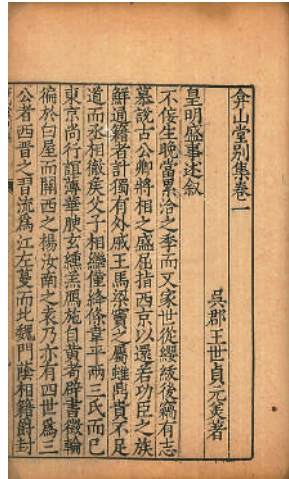 弇山堂别集卷一
吳郡王世貞元美著
皇明盛事述叙
不佞生晚當累洽之季而又家世從纓緌後竊有志
慕說古公卿將相之盛屈指西京以還若功臣之族
鮮通籍者計獨有外戚王馬梁竇之屬雖鼎貴不足
道而丞相徹矦父子相繼僅絳條韋平兩三氏而已
東京尚行誼薄華腴玄纁羔鴈施自黄者辟書徵輪
徧於白屋而關西之楊汝南之袁乃亦有四世爲三
公者西晋之習流爲江左蔓而北魏門蔭相籍爵封